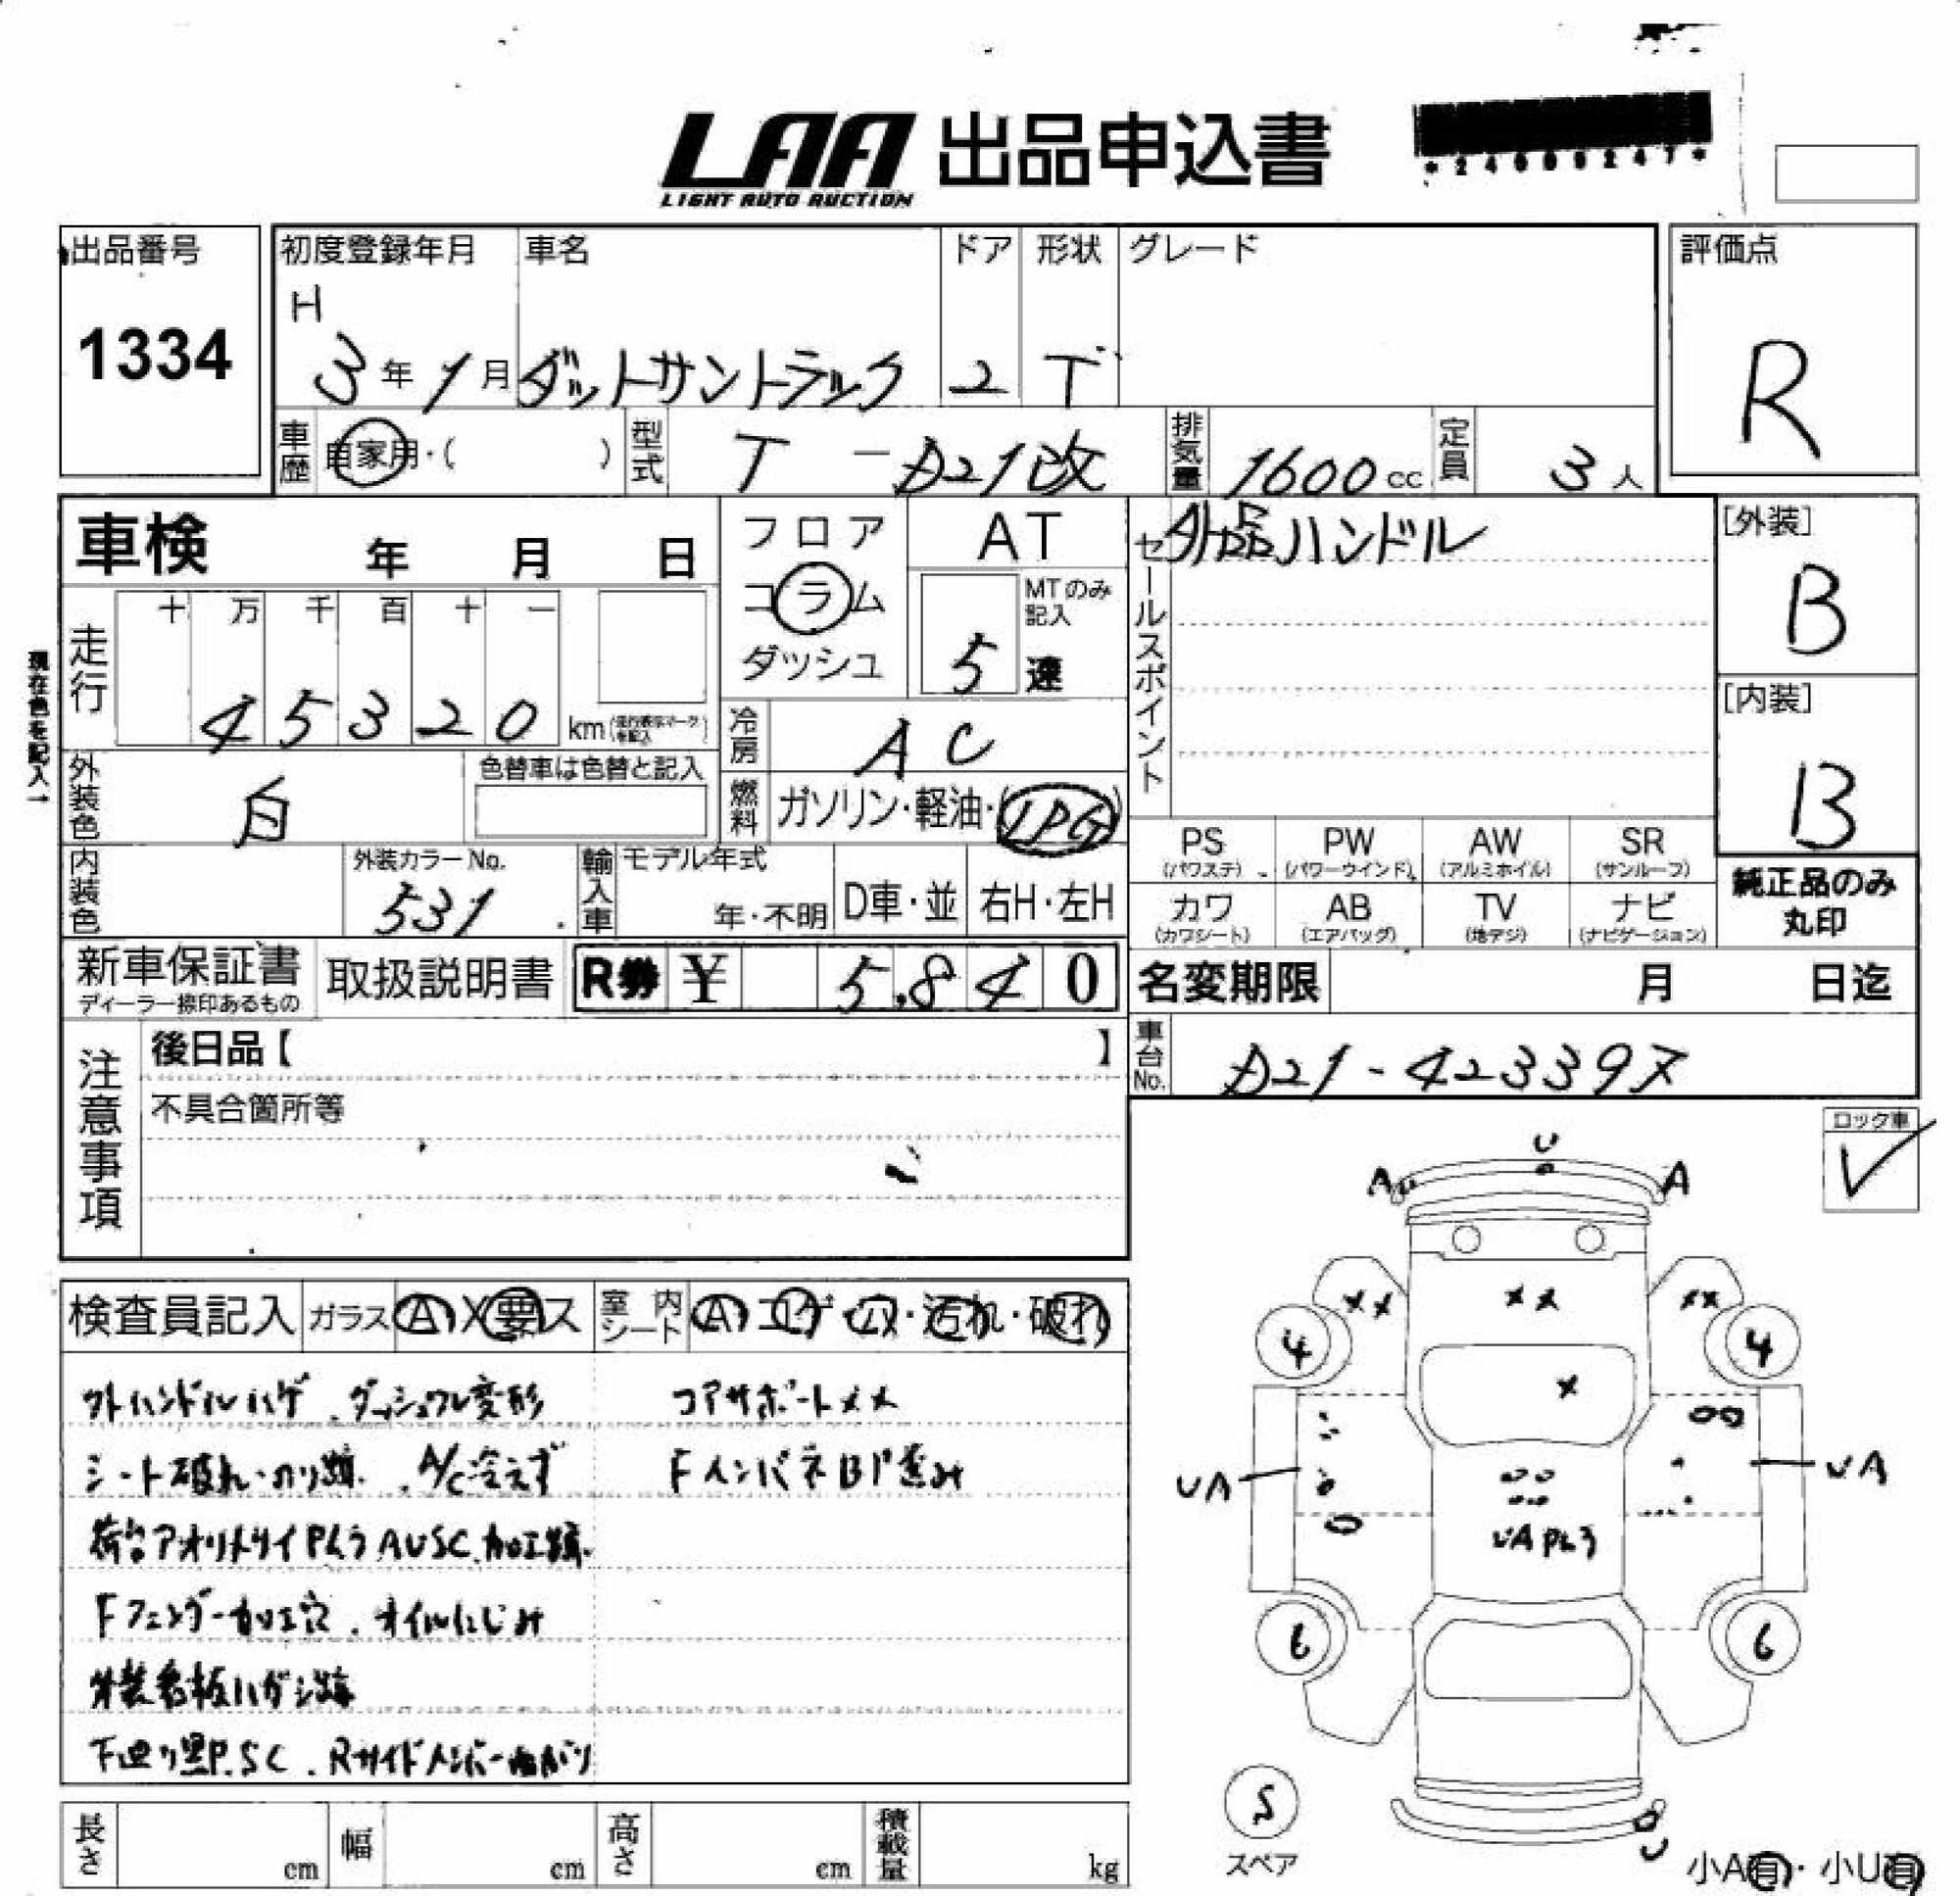 LAA 出品申込書
LIGHT AUTO AUCTION
*24000247*
出品番号 初度登録年月 車名 ドア 形状 グレード 評価点
1334
H
3年1月 ダットサントラック 2 T R
車歴 自家用・( ) 型式 T-D21改 排気量 1600cc 定員 3人
車検 年 月 日
フロア AT
コラム
ダッシュ
MTのみ記入
5速
セールスポイント 外品ハンドル
[外装]
B
[内装]
B
現在色を記入→
走行 十 万 千 百 十 一
45320 km
冷房 AC
外装色 白 色替車は色替と記入
燃料 ガソリン・軽油・(LPG)
PS PW AW SR
(パワステ) (パワーウインド) (アルミホイル) (サンルーフ)
カワ AB TV ナビ
(カワシート) (エアバッグ) (地デジ) (ナビゲーション)
純正品のみ
丸印
内装色 外装カラーNo. 輸入車 モデル年式
531 年・不明 D車・並 右H・左H
新車保証書 取扱説明書 R券 ¥ 5,840
ディーラー捺印あるもの
名変期限 月 日迄
車台No. D21-423397
注意事項
後日品【 】
不具合箇所等
ロック車
✓
検査員記入 ガラス A X 要 ス 室内シート A・コゲ・穴・汚れ・破れ
外ハンドルハゲ、ダッシュワレ変形 コアサポートメメ
シート破れ・のり跡、A/C冷えず FインパネBP歪み
荷台アオリメクイPムラAUSC、加工跡
Fフェンダー加工穴、オイルにじみ
外装看板ハガシ跡
下廻り黒P.SC、Rサイドメンバー曲がり
U
A A
XX XX XX
4 4
X
UA UA
UAPムラ
6 6
S
スペア
U
小A有・小U有
長さ cm 幅 cm 高さ cm 積載量 kg